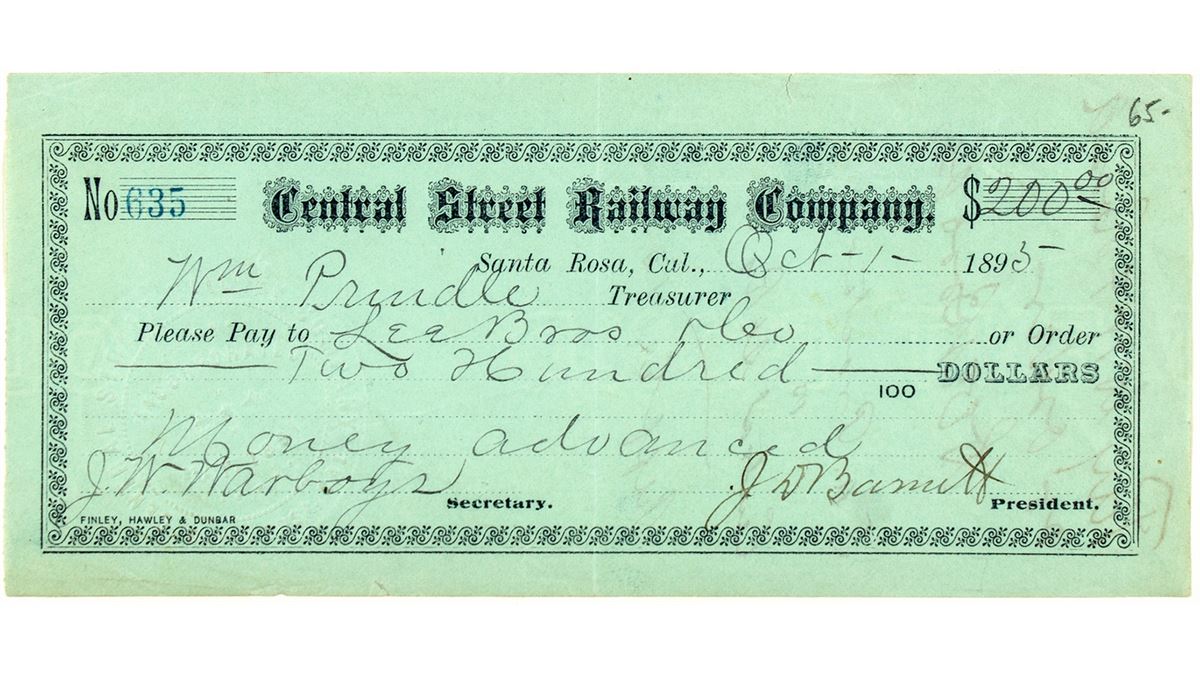 65-
No 635 Central Street Railway Company. $200.00
Santa Rosa, Cal., Oct-1- 1895
Wm Prindle Treasurer
Please Pay to Lee Bros & Co or Order
Two Hundred /100 DOLLARS
Money advanced
J. W. Warboys Secretary. J D Barnett President.
FINLEY, HAWLEY & DUNBAR